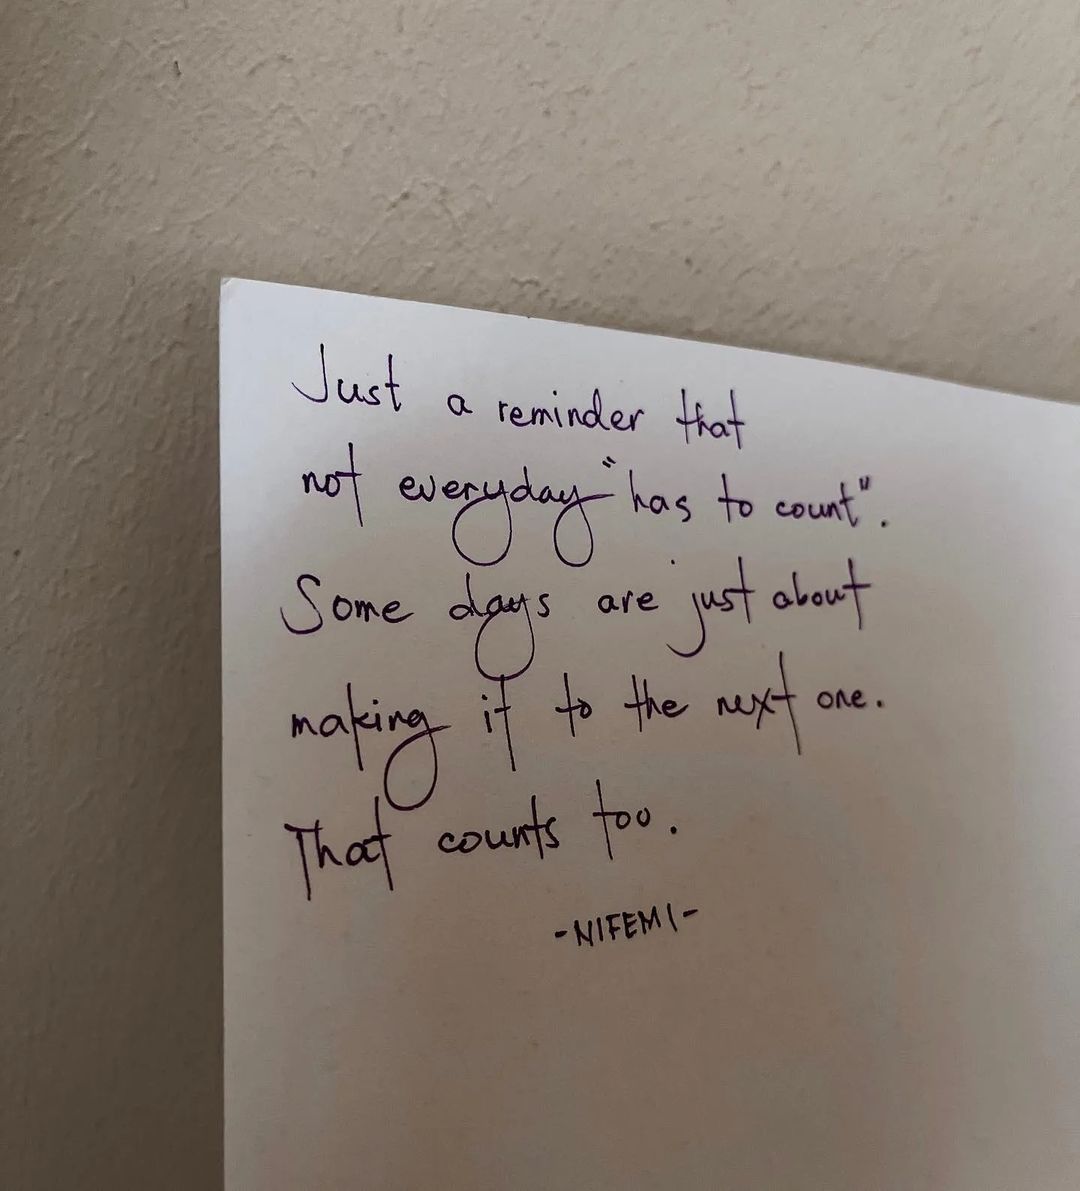 Just a reminder that
not everyday "has to count".
Some days are just about
making it to the next one.
That counts too.
-NIFEMI-